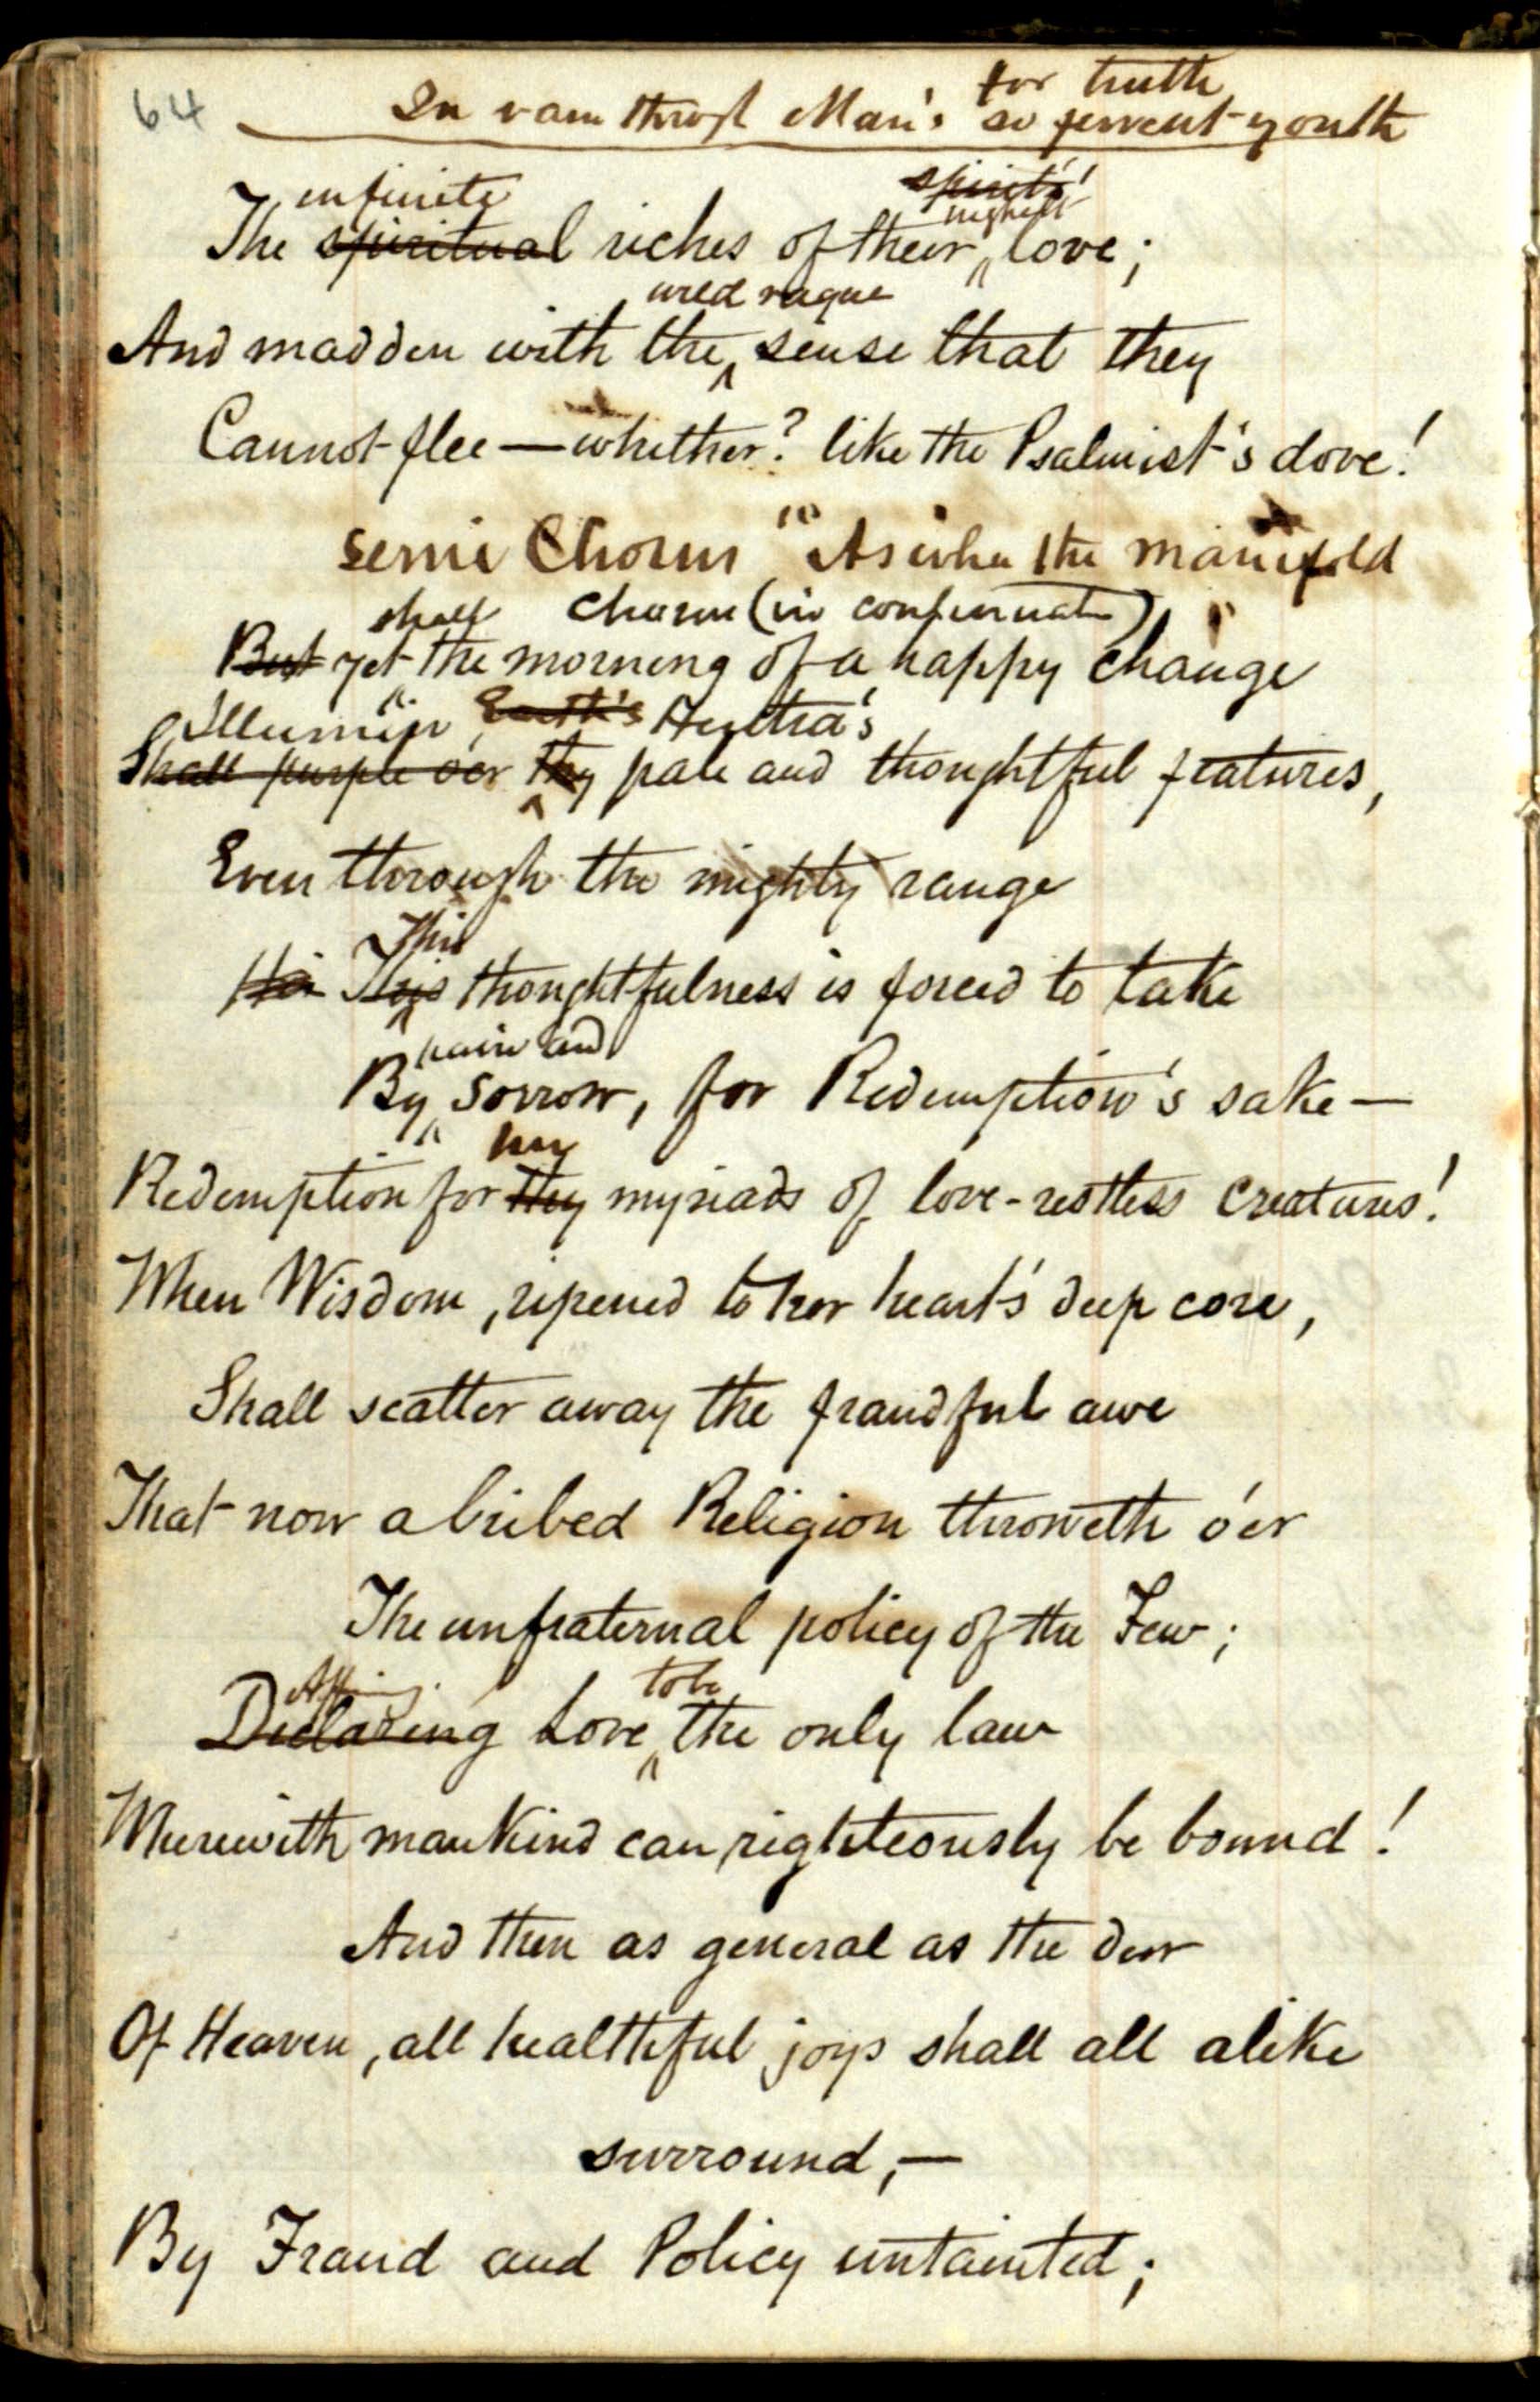 64
for truth
In vain throb Man's so fervent youth
infinite spirits'
highest
The spiritual riches of their love;
wild vague
And madden with the sense that they
Cannot flee — whither? like the Psalmist's dove!
Semi Chorus "As when the manifold
shall Chorus (in confirmation)
But yet the morning of a happy change
Illumin Earth's Hertha's
Shall purple o'er thy pale and thoughtful features,
Even through the mighty range
This
thoughtfulness is forced to take
pain and
By sorrow, for Redemption's sake —
her
Redemption for thy myriads of love-restless creatures!
When Wisdom, ripened to her heart's deep core,
Shall scatter away the fraudful awe
That now a bribed Religion throweth o'er
The unfraternal policy of the Few;
to be
Declaring Love the only law
Wherewith mankind can righteously be bound!
And then as general as the dew
Of Heaven, all healthful joys shall all alike
surround, —
By Fraud and Policy untainted;